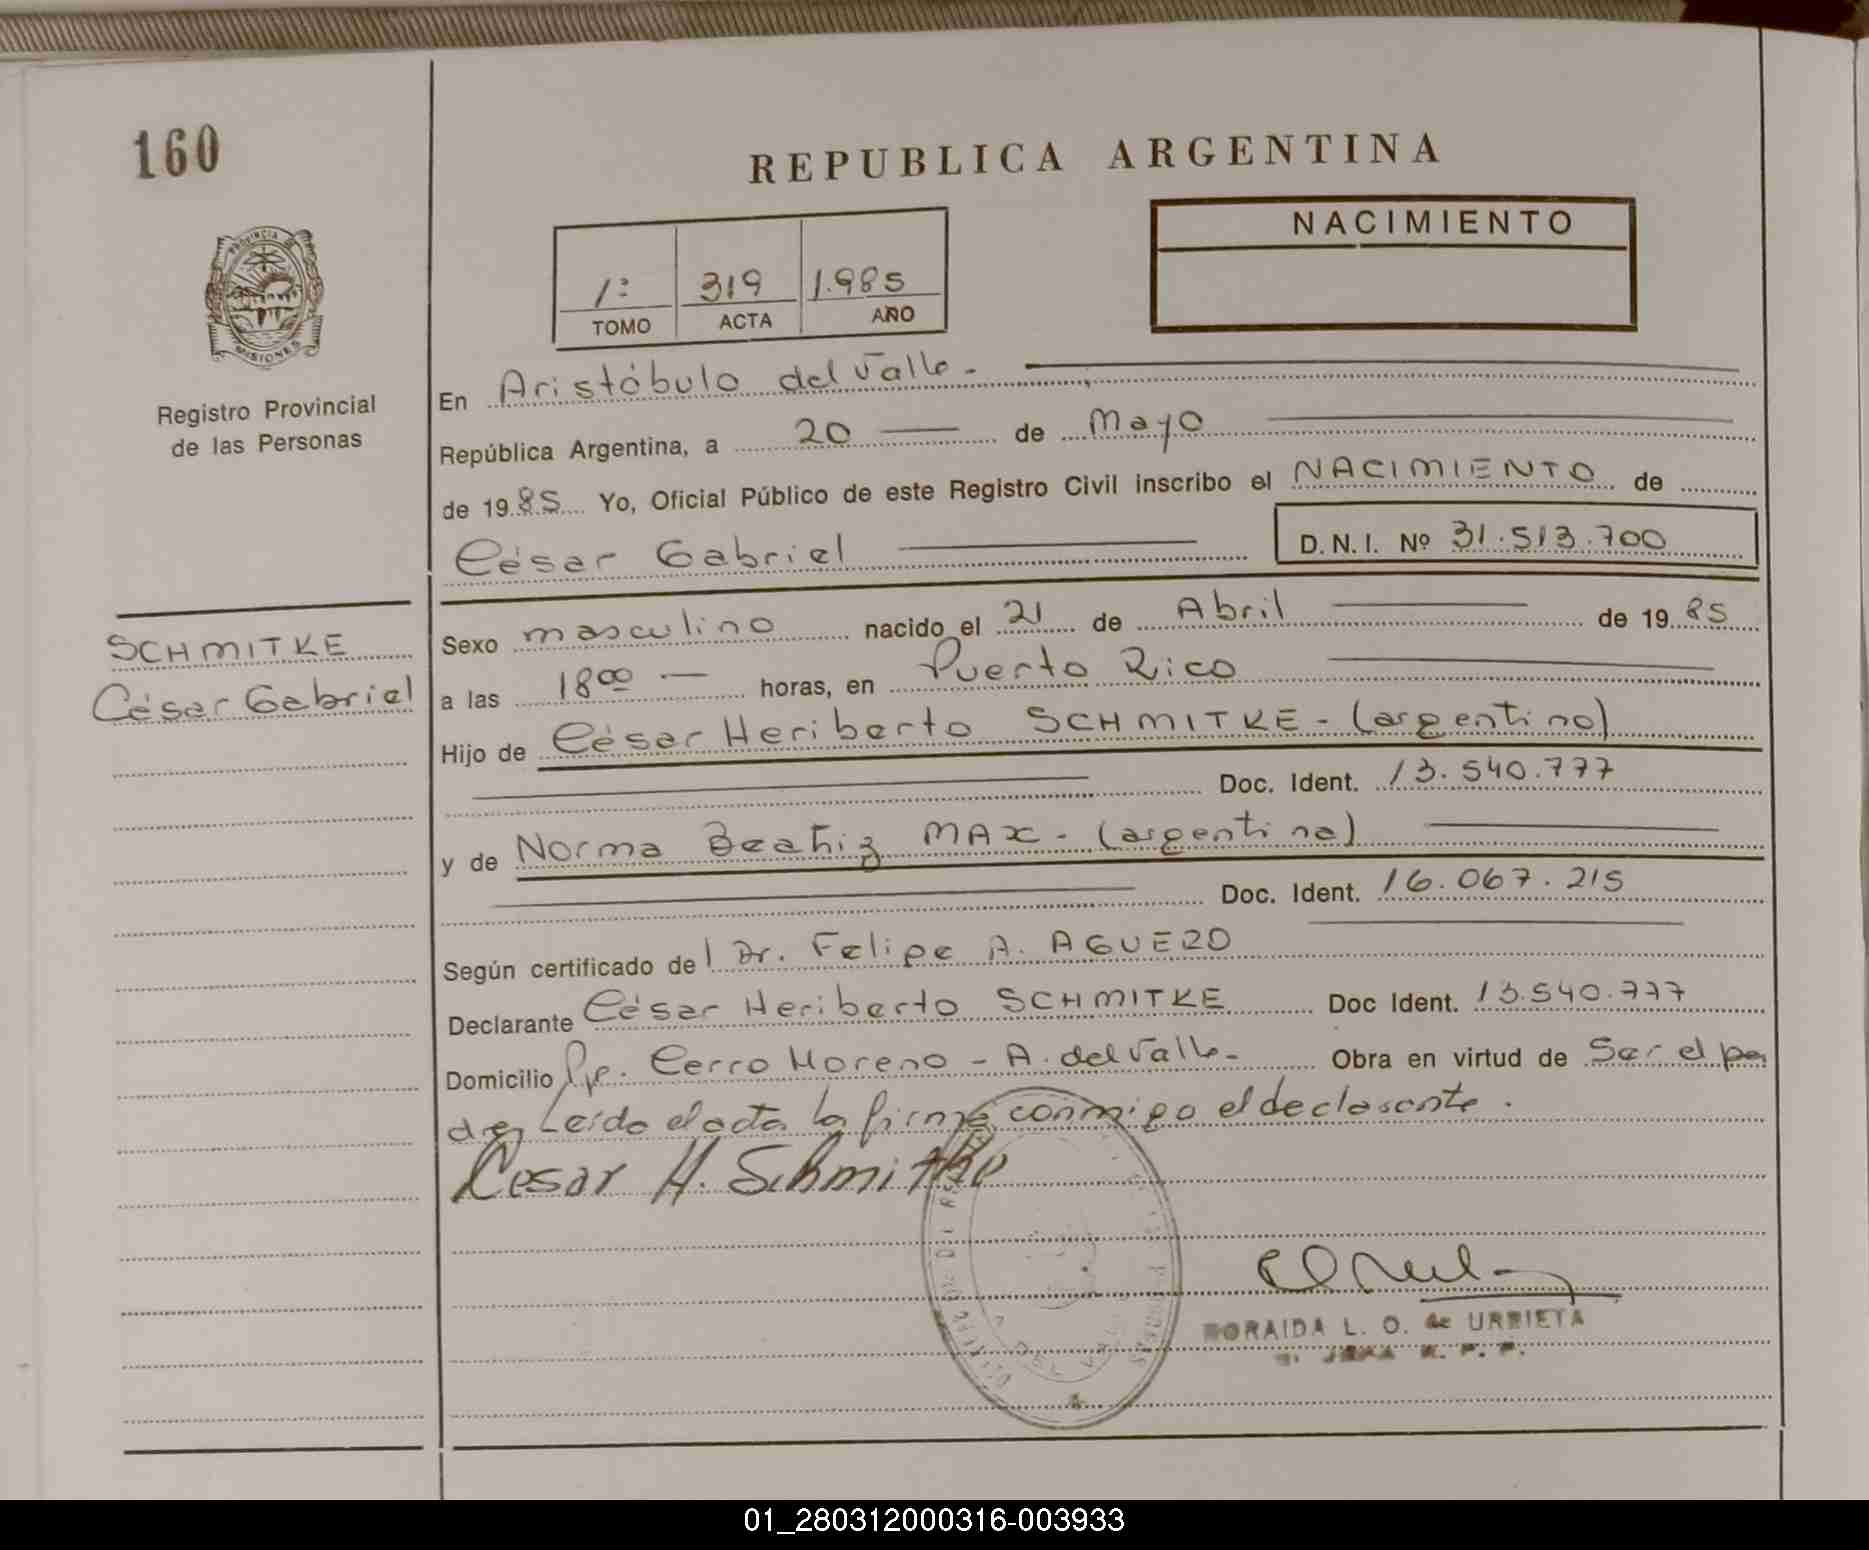 160
REPUBLICA ARGENTINA
PROVINCIA DE
MISIONES
Registro Provincial
de las Personas
1º 319 1.985
TOMO ACTA AÑO
NACIMIENTO
En Aristóbulo del Valle.-
República Argentina, a 20 de Mayo
de 1985 Yo, Oficial Público de este Registro Civil inscribo el NACIMIENTO de
César Gabriel D.N.I. Nº 31.513.700
SCHMITKE
César Gabriel
Sexo masculino nacido el 21 de Abril de 1985
a las 18 00 horas, en Puerto Rico
Hijo de César Heriberto SCHMITKE - (argentino)
Doc. Ident. 13.540.777
y de Norma Beatriz MAX - (argentina)
Doc. Ident. 16.067.215
Según certificado del Dr. Felipe A. AGUEZO
Declarante César Heriberto SCHMITKE Doc Ident. 13.540.777
Domicilio Cerro Moreno - A. del Valle- Obra en virtud de Ser el pa
dre, Leído el acta la firma conmigo el declarante.
Cesar H. Schmitke
DEL
ORAIDA L. O. de URRIETA
01_280312000316-003933